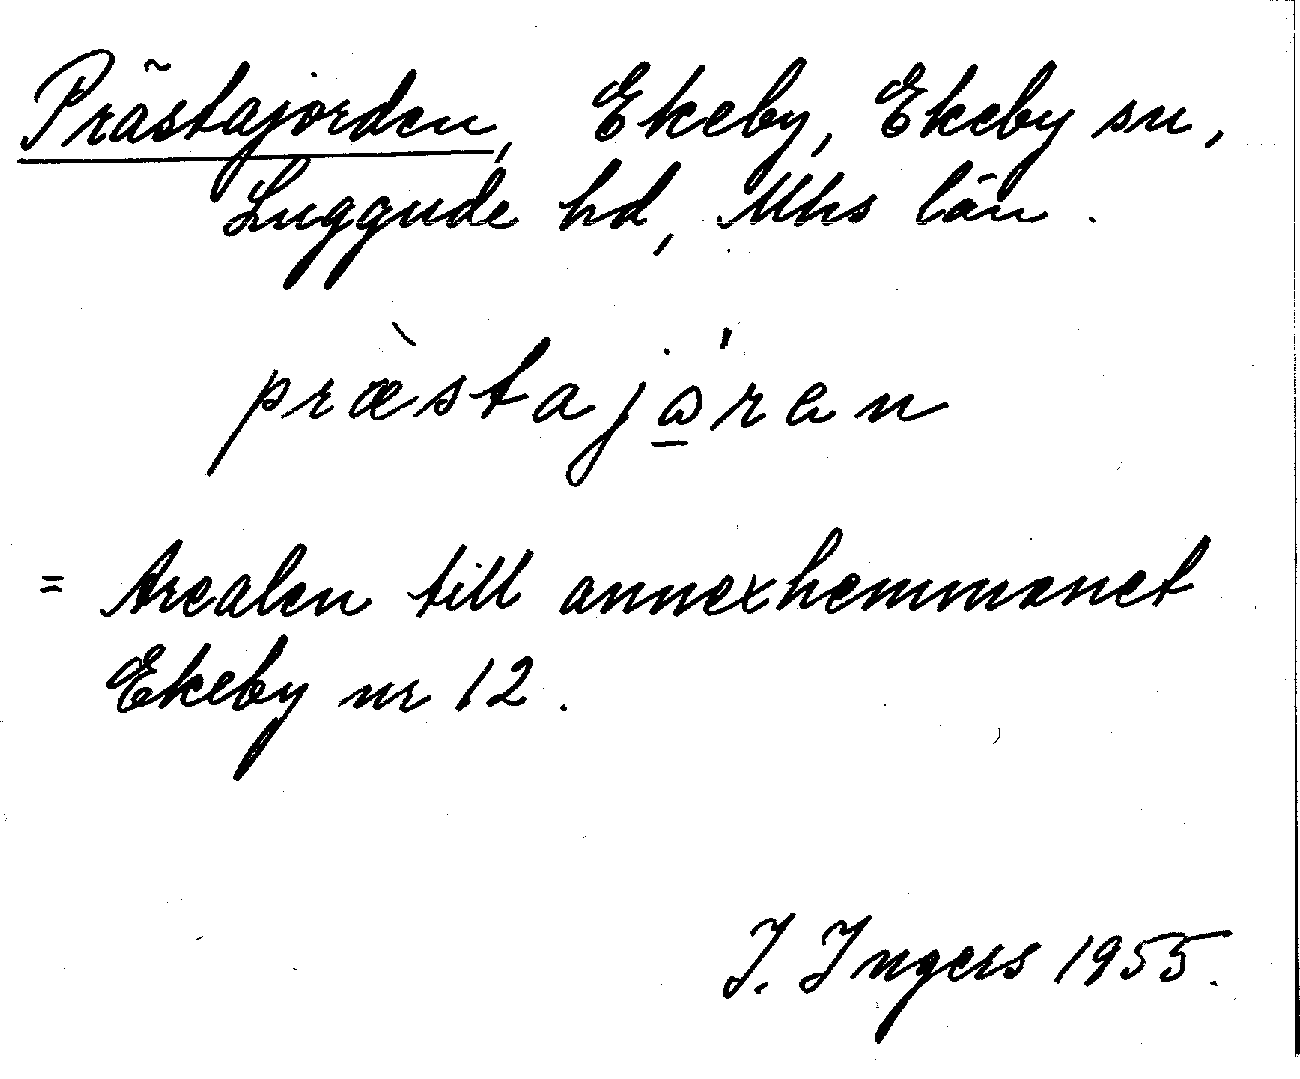 Prästajorden, Ekeby, Ekeby sn,
Luggude hd, Mhs län.
præ̀stajώ̲ren
= Arealen till annexhemmanet
Ekeby nr 12.
I. Ingers 1955.